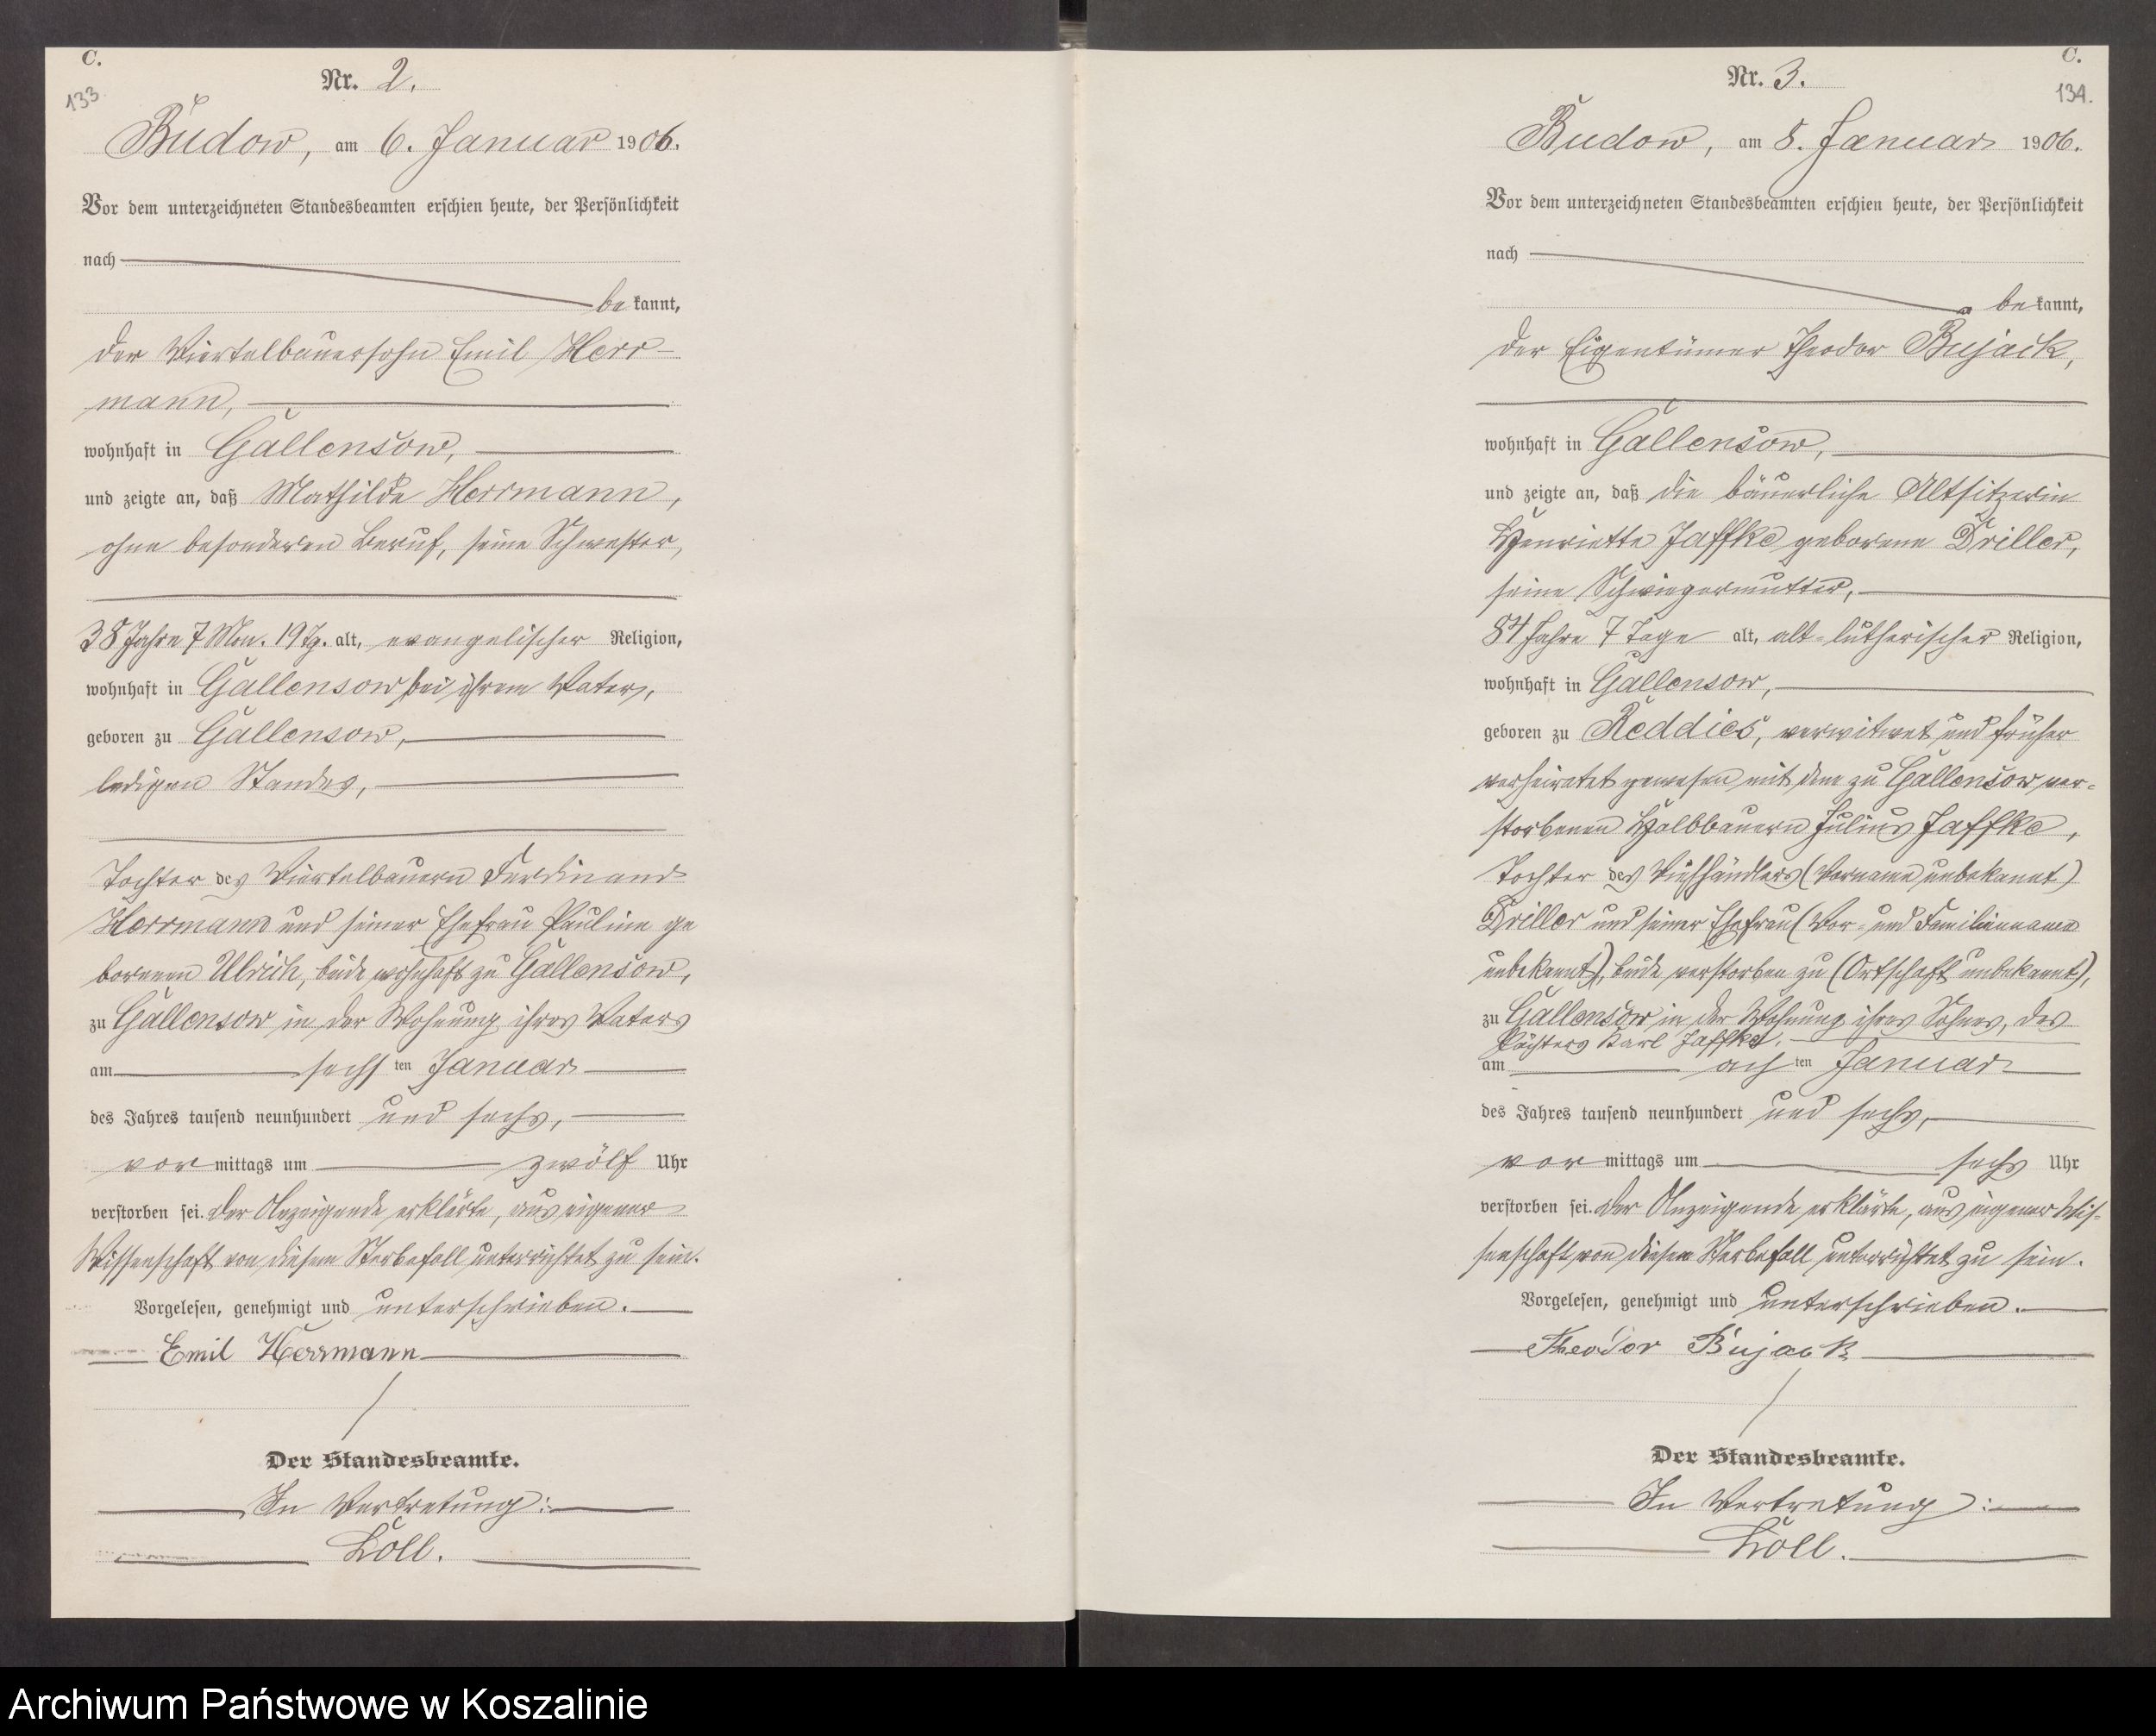 C.
133
Nr. 2.
Budow, am 6. Januar 1906.
Vor dem unterzeichneten Standesbeamten erschien heute, der Persönlichkeit
nach
bekannt,
der Viertelbauersohn Emil Herr-
mann,
wohnhaft in Gallensow,
und zeigte an, daß Mathilde Herrmann,
ohne besonderen Beruf, seine Schwester,
38 Jahre 7 Mon. 19 Tg. alt, evangelischer Religion,
wohnhaft in Gallensow bei ihrem Vater,
geboren zu Gallensow,
ledigen Standes,
Tochter des Viertelbauern Ferdinand
Herrmann und seiner Ehefrau Pauline ge
borenen Ulrich, beide wohnhaft zu Gallensow,
zu Gallensow in der Wohnung ihres Vaters
am sechsten Januar
des Jahres tausend neunhundert und sechs,
vormittags um zwölf Uhr
verstorben sei. Der Anzeigende erklärte, aus eigener
Wissenschaft von diesem Sterbefall unterrichtet zu sein.
Vorgelesen, genehmigt und unterschrieben.
Emil Herrmann
Der Standesbeamte.
In Vertretung:
Löll.
C.
134.
Nr. 3.
Budow, am 8. Januar 1906.
Vor dem unterzeichneten Standesbeamten erschien heute, der Persönlichkeit
nach
bekannt,
der Eigentümer Theodor Bujack,
wohnhaft in Gallensow,
und zeigte an, daß die bäuerliche Altsitzerin
Henriette Jaffke geborene Driller,
seine Schwiegermutter,
84 Jahre 7 Tage alt, alt-lutherischer Religion,
wohnhaft in Gallensow,
geboren zu Reddies, verwitwet und früher
verheiratet gewesen mit dem zu Gallensow ver-
storbenen Halbbauern Julius Jaffke,
Tochter des Viehhändlers (Vorname unbekannt)
Driller und seiner Ehefrau (Vor- und Familienname
unbekannt), beide verstorben zu (Ortschaft unbekannt),
zu Gallensow in der Wohnung ihres Sohnes, des
Pächters Karl Jaffke,
am achten Januar
des Jahres tausend neunhundert und sechs,
vormittags um sechs Uhr
verstorben sei. Der Anzeigende erklärte, aus eigener Wis-
senschaft von diesem Sterbefall unterrichtet zu sein.
Vorgelesen, genehmigt und unterschrieben.
Theodor Bujack
Der Standesbeamte.
In Vertretung:
Löll.
Archiwum Państwowe w Koszalinie